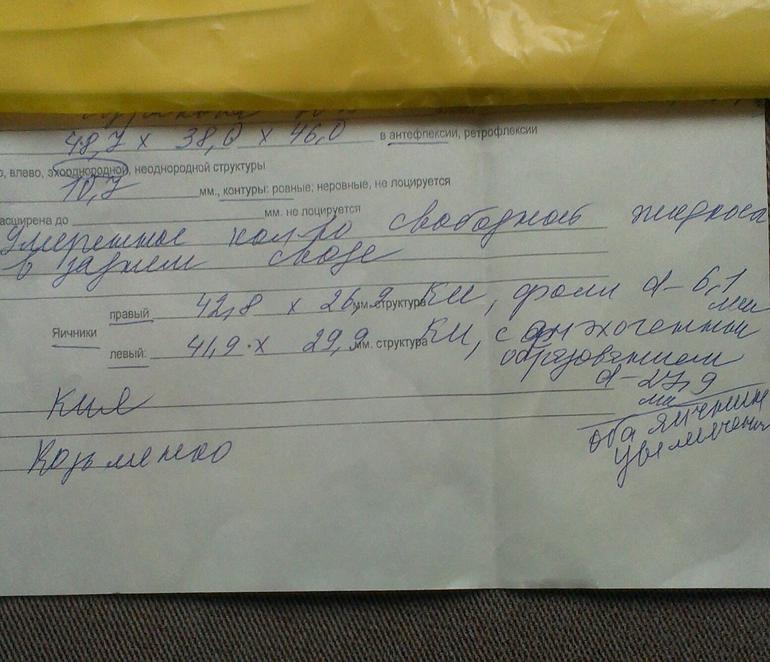 48,7 х 38,0 х 46,0 в антефлексии, ретрофлексии
о, влево, эхооднородной, неоднородной структуры
10,7 мм., контуры: ровные; неровные, не лоцируется
асширена до мм. не лоцируется
умеренное кол-во свободной жидкос
в заднем своде
Яичники
правый 42,8 х 26,9 мм. структура КИ, фолл d-6,1 мм
левый: 41,9 х 29,9 мм. структура КИ, с анэхогенным
образованием
d-27,9
мм
оба яичника
увеличены
Кия
Козьменко